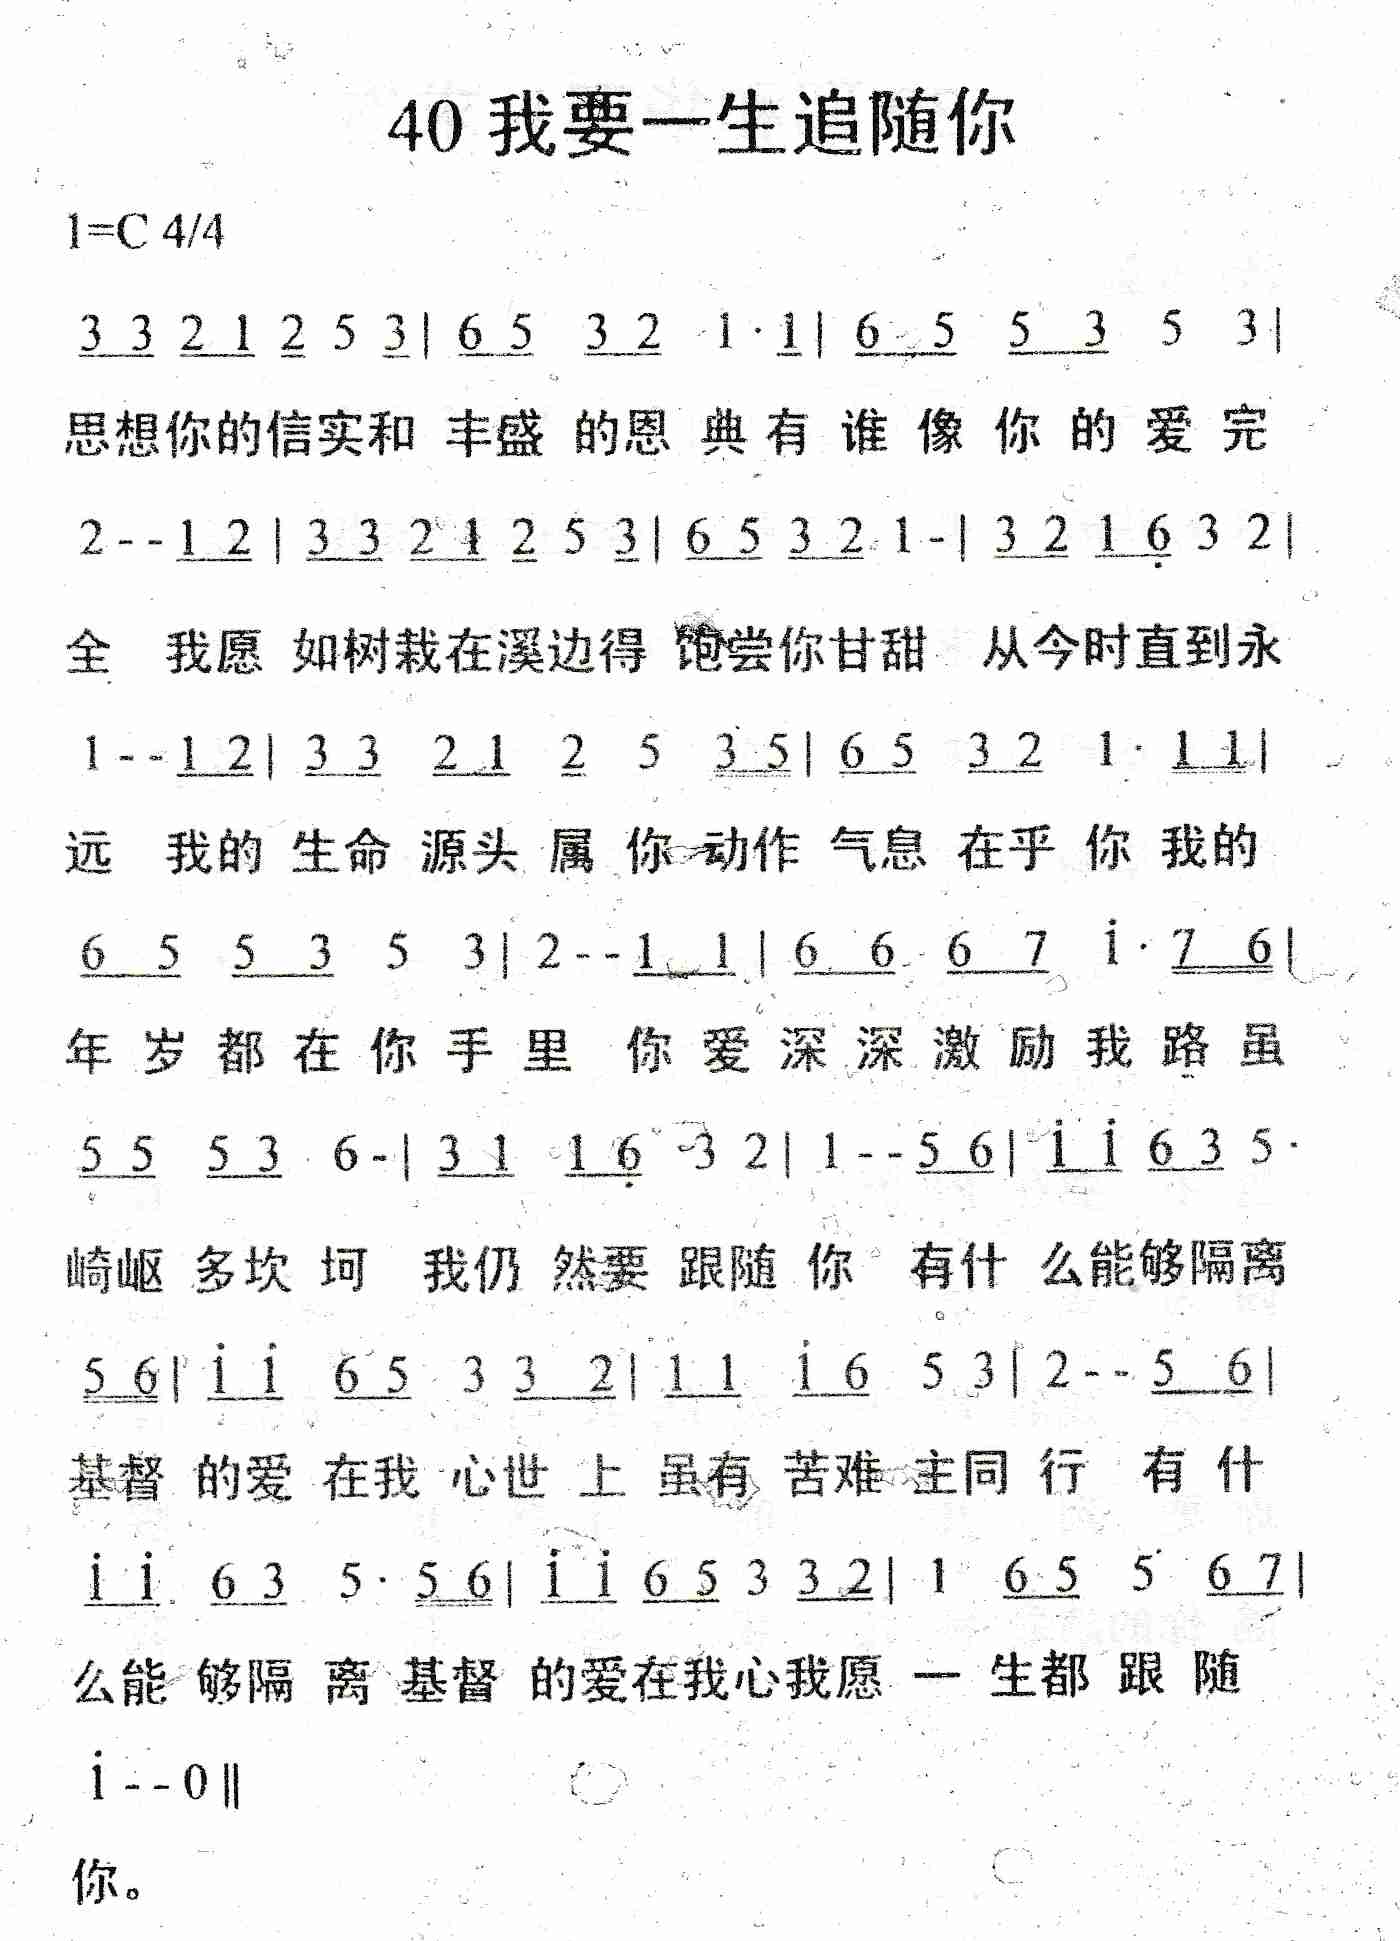 40 我要一生追随你
1=C 4/4
3 3 2 1 2 5 3 | 6 5 3 2 1 · 1 | 6 5 5 3 5 3 |
思想你的信实和 丰盛 的恩 典 有 谁 像 你 的 爱 完
2 - - 1 2 | 3 3 2 1 2 5 3 | 6 5 3 2 1 - | 3 2 1 6̣ 3 2 |
全 我愿 如树栽在溪边得 饱尝你甘甜 从今时直到永
1 - - 1 2 | 3 3 2 1 2 5 3 5 | 6 5 3 2 1 · 1 1 |
远 我的 生命 源头 属 你 动作 气息 在乎 你 我的
6 5 5 3 5 3 | 2 - - 1 1 | 6 6 6 7 i · 7 6 |
年 岁 都 在 你 手 里 你 爱 深 深 激 励 我 路 虽
5 5 5 3 6 - | 3 1 1 6̣ 3 2 | 1 - - 5 6 | i i 6 3 5 ·
崎岖 多坎 坷 我仍 然要 跟随 你 有什 么能够隔离
5 6 | i i 6 5 3 3 2 | 1 1 i 6 5 3 | 2 - - 5 6 |
基督 的爱 在我 心世 上 虽有 苦难 主同 行 有 什
i i 6 3 5 · 5 6 | i i 6 5 3 3 2 | 1 6 5 5 6 7 |
么能 够隔 离 基督 的爱在我心我愿 一 生都 跟 随
i - - 0 ‖
你。